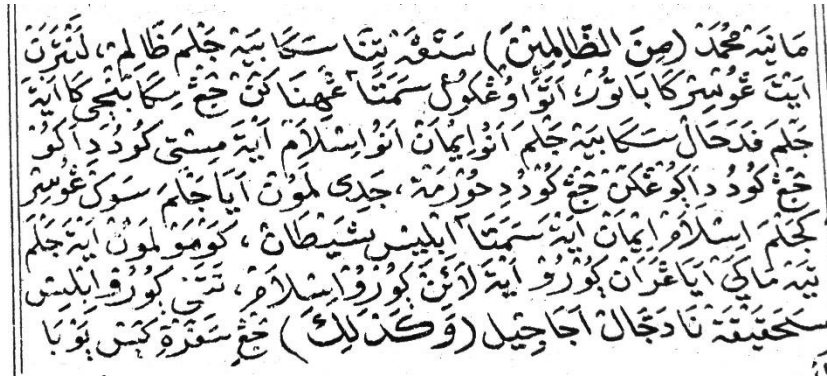 مانيه محمد (مِنَ الظَّالِمِيْنَ) سڠڬه تيتا سكابيه جلم ظالم، لنترن
ايت ڠوسير كا باتور، اتوا وڠكول سمتا ڠهينا كن جڠ سكا بنجي كا ايه
جلم فدحال سكابيه جلم انو ايمان انو اسلام ايه مستي كودو داكو
جڠ كودو داكوڠكن جڠ كودو دحورمة، جدي لمون ايا جلم سوك ڠوسير
كجلم اسلام ايمان ايه سمتا ابليس شيطان، كومو لمون ايه جلم
تيه ماكي ايا ڠران ڬورو ايه لائن ڬورو اسلام، تتفي ڬورو ابليس
سحقيقة نا دجال اجاجيل (وَكَذَلِكَ) جڠ سفرة